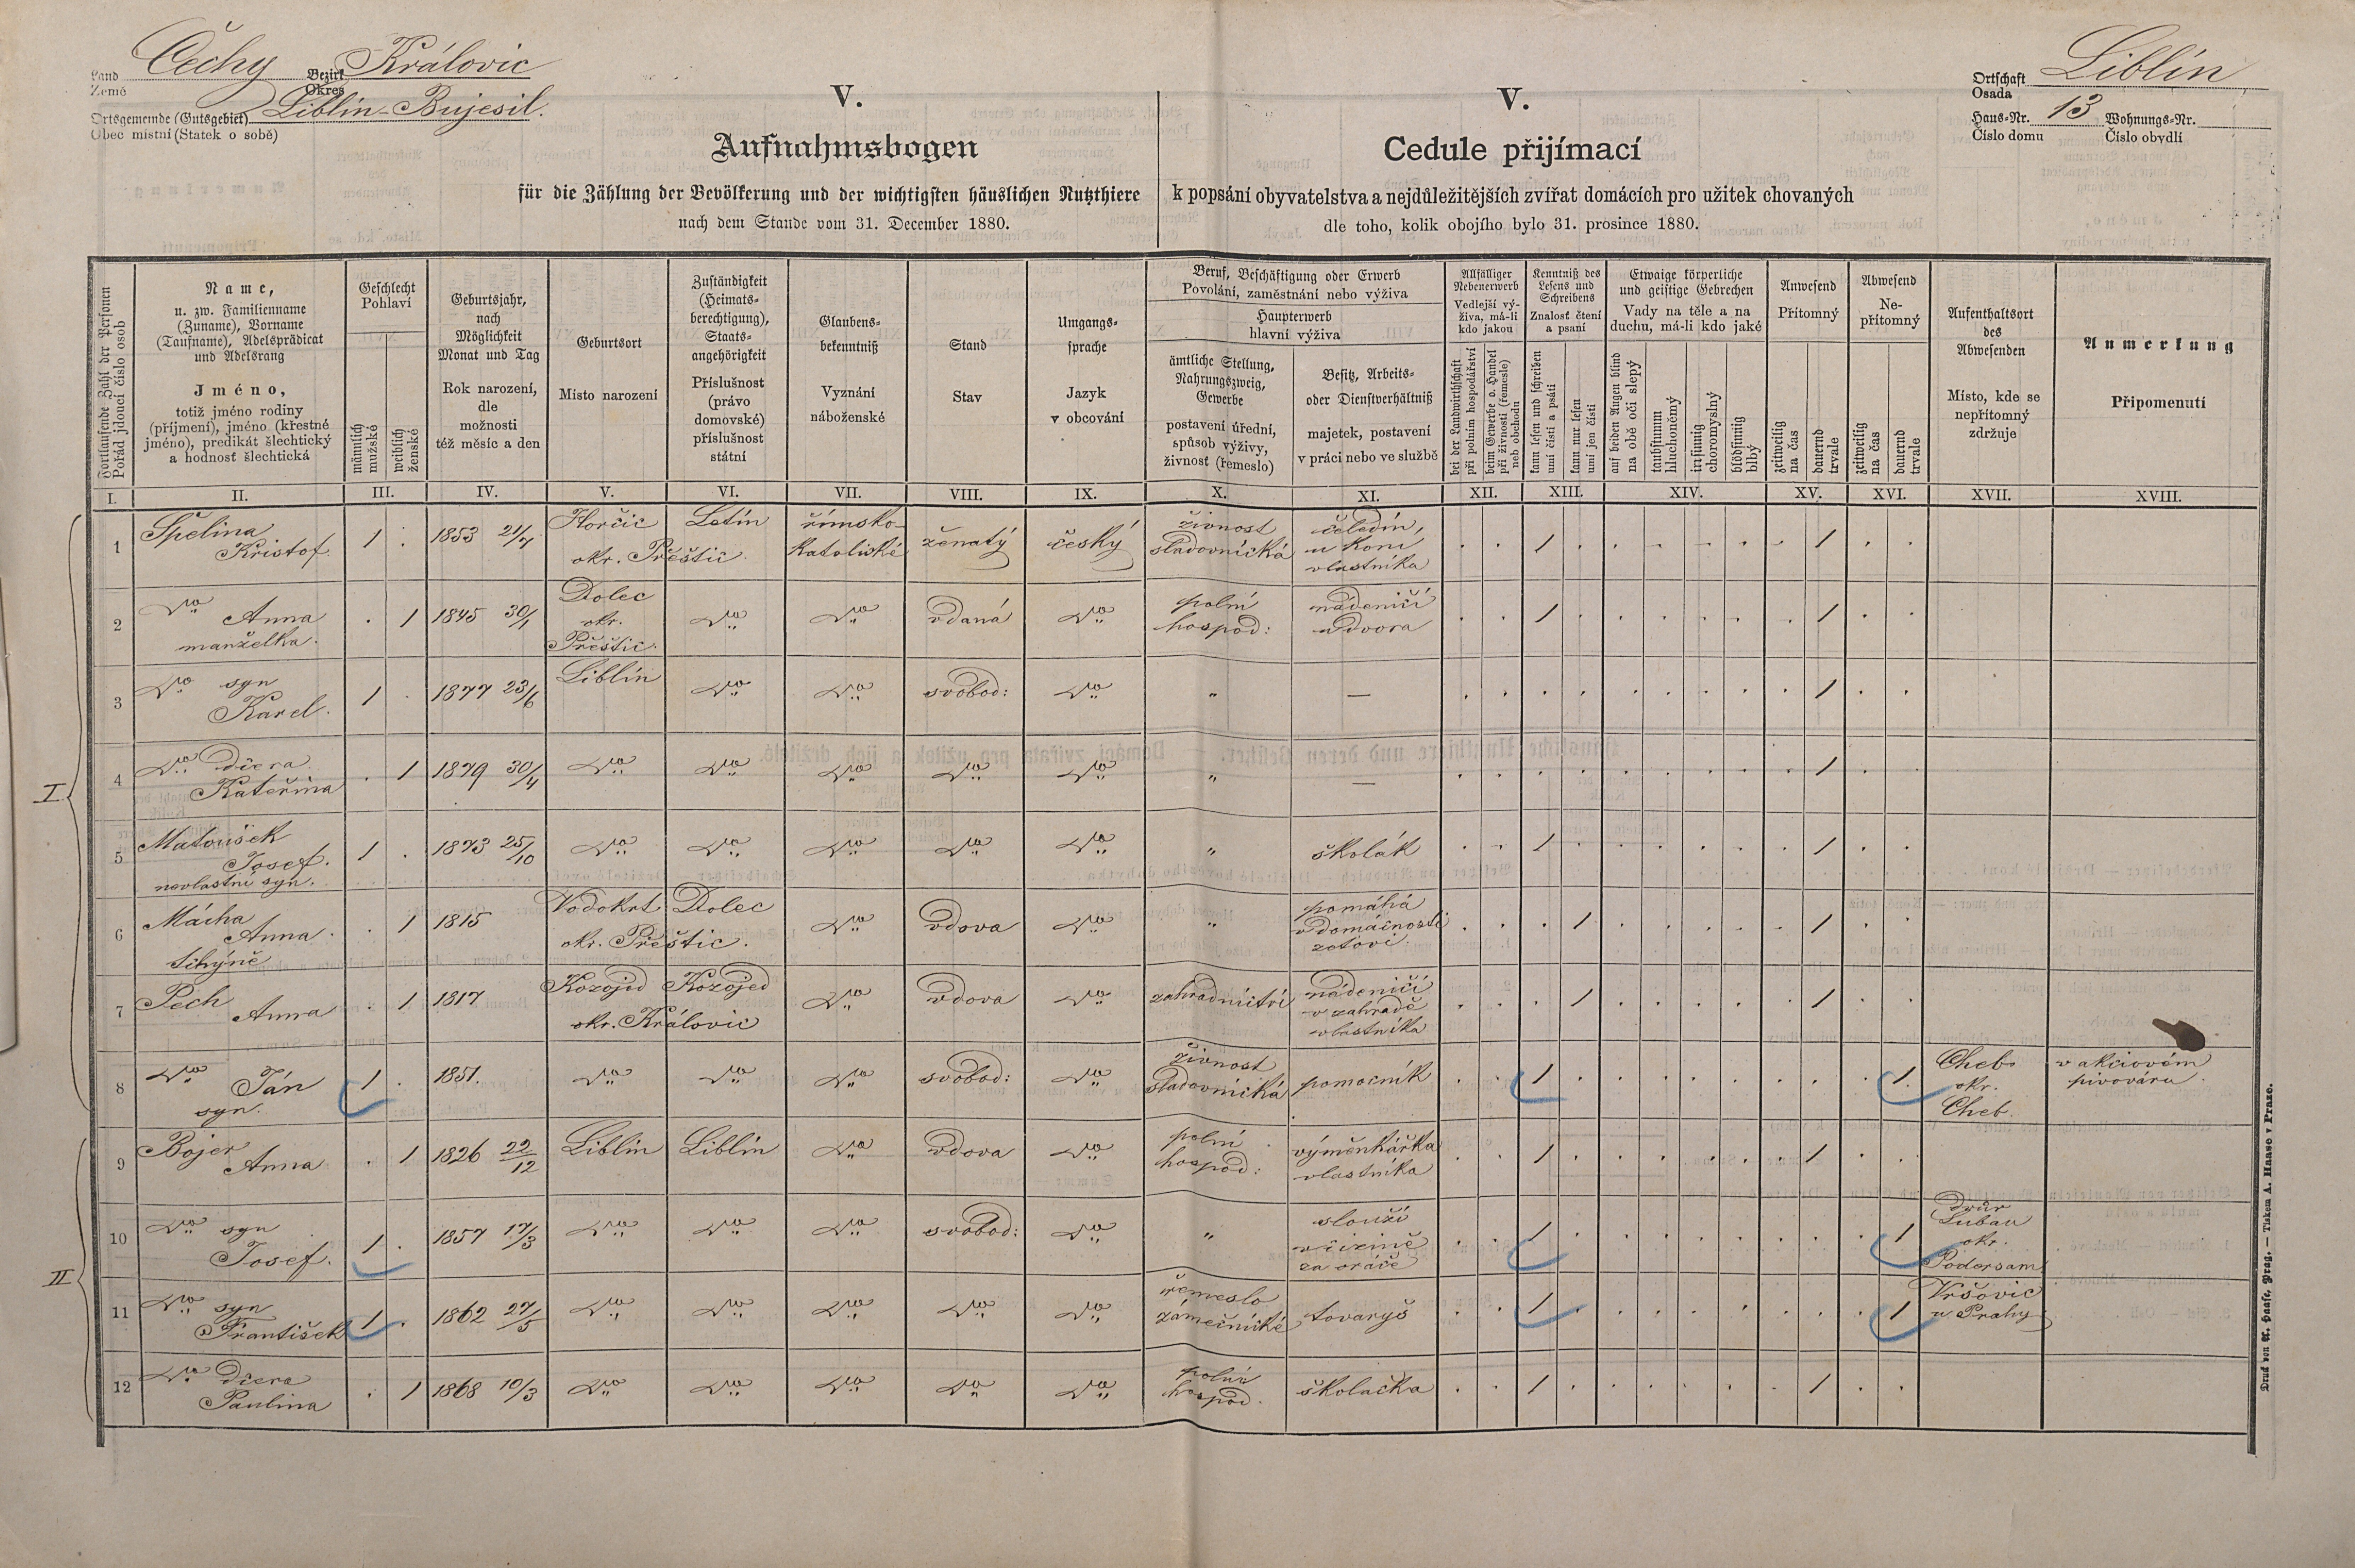 Land Čechy Bezirk Královic
Země Okres
Ortsgemeinde (Gutsgebiet) Liblín-Bujesil.
Obec místní (Statek o sobě)
V.
Aufnahmsbogen
für die Zählung der Bevölkerung und der wichtigsten häuslichen Nutzthiere
nach dem Stande vom 31. December 1880.
V.
Cedule přijímací
k popsání obyvatelstva a nejdůležitějších zvířat domácích pro užitek chovaných
dle toho, kolik obojího bylo 31. prosince 1880.
Ortschaft Liblín
Osada
Haus-Nr. 13 Wohnungs-Nr.
Číslo domu Číslo obydlí
Fortlaufende Zahl der Personen
Pořád jdoucí číslo osob
Name,
u. zw. Familienname
(Zuname), Vorname
(Taufname), Adelsprädicat
und Adelsrang
Jméno,
totiž jméno rodiny
(příjmení), jméno (křestné
jméno), predikát šlechtický
a hodnost šlechtická
Geschlecht
Pohlaví
männlich
mužské
weiblich
ženské
Geburtsjahr,
nach
Möglichkeit
Monat und Tag
Rok narození,
dle
možnosti
též měsíc a den
Geburtsort
Místo narození
Zuständigkeit
(Heimats-
berechtigung),
Staats-
angehörigkeit
Příslušnost
(právo
domovské)
příslušnost
státní
Glaubens-
bekenntniß
Vyznání
náboženské
Stand
Stav
Umgangs-
sprache
Jazyk
v obcování
Beruf, Beschäftigung oder Erwerb
Povolání, zaměstnání nebo výživa
Haupterwerb
hlavní výživa
ämtliche Stellung,
Nahrungszweig,
Gewerbe
postavení úřední,
spůsob výživy,
živnost (řemeslo)
Besitz, Arbeits-
oder Dienstverhältniß
majetek, postavení
v práci nebo ve službě
Allfälliger
Nebenerwerb
Vedlejší vý-
živa, má-li
kdo jakou
bei der Landwirthschaft
při polním hospodářství
beim Gewerbe o. Handel
při živnosti (řemesle)
neb obchodu
Kenntniß des
Lesens und
Schreibens
Znalost čtení
a psaní
kann lesen und schreiben
umí čísti a psáti
kann nur lesen
umí jen čísti
Etwaige körperliche
und geistige Gebrechen
Vady na těle a na
duchu, má-li kdo jaké
auf beiden Augen blind
na obě oči slepý
taubstumm
hluchoněmý
irrsinnig
choromyslný
blödsinnig
blbý
Anwesend
Přítomný
zeitweilig
na čas
dauernd
trvale
Abwesend
Ne-
přítomný
zeitweilig
na čas
dauernd
trvale
Aufenthaltsort
des
Abwesenden
Místo, kde se
nepřítomný
zdržuje
Anmerkung
Připomenutí
I. II. III. IV. V. VI. VII. VIII. IX. X. XI. XII. XIII. XIV. XV. XVI. XVII. XVIII.
I
1 Spělina Kristof 1 . 1853 21/7 Horčic Letín okr. Přeštic římsko-katolické ženatý český živnost sladovnická čeledín, u koní vlastníka . . 1 . . . . . . 1 . .
2 Dto Anna manželka . . 1 1845 30/1 Dolec okr. Přeštic. Dto Dto vdaná Dto polní hospod: nádeničí u dvora . . 1 . . . . . . 1 . .
3 Dto syn Karel. 1 . 1877 23/6 Liblín Dto Dto svobod: Dto " — . . . . . . . . . 1 . .
4 Dto dcera Kateřina . 1 1879 30/4 Dto Dto Dto Dto Dto " — . . . . . . . . . 1 . .
5 Matoušek Josef. nevlastní syn. 1 . 1873 25/10 Dto Dto Dto Dto Dto " školák . . 1 . . . . . . 1 . .
6 Mácha Anna . tchýně . 1 1815 Vodokrt Dolec okr. Přeštic . Dto vdova Dto " pomáhá v domácnosti zeťovi . . . . 1 . . . . . 1 . .
7 Pech Anna . 1 1817 Kozojed Kozojed okr. Královic Dto vdova Dto zahradnictví nádeničí v zahradě vlastníka . . . 1 . . . . . 1 . .
8 Dto Ján syn. 1 . 1851. Dto Dto Dto svobod: Dto živnost sladovnická pomocník . . 1 . . . . . . . . 1 Cheb okr. Cheb v akciovém pivováru .
II
9 Bojer Anna . 1 1826 22/12 Liblín Liblín Dto vdova Dto polní hospod: výměnkářka vlastníka . . 1 . . . . . . 1 . .
10 Dto syn Josef. 1 . 1857 17/3 Dto Dto Dto svobod: Dto " slouží v cizině za oráče . . 1 . . . . . . . . 1 dvůr Luban okr. Podorsam
11 Dto syn František 1 . 1862 27/5 Dto Dto Dto Dto Dto řemeslo zámečnické tovaryš . . 1 . . . . . . . . 1 Vršovic u Prahy
12 Dto dcera Paulina . 1 1868 10/3 Dto Dto Dto Dto Dto polní hospod. školačka . . 1 . . . . . . 1 . .
Druck von A. Haase, Prag. — Tiskem A. Haase v Praze.